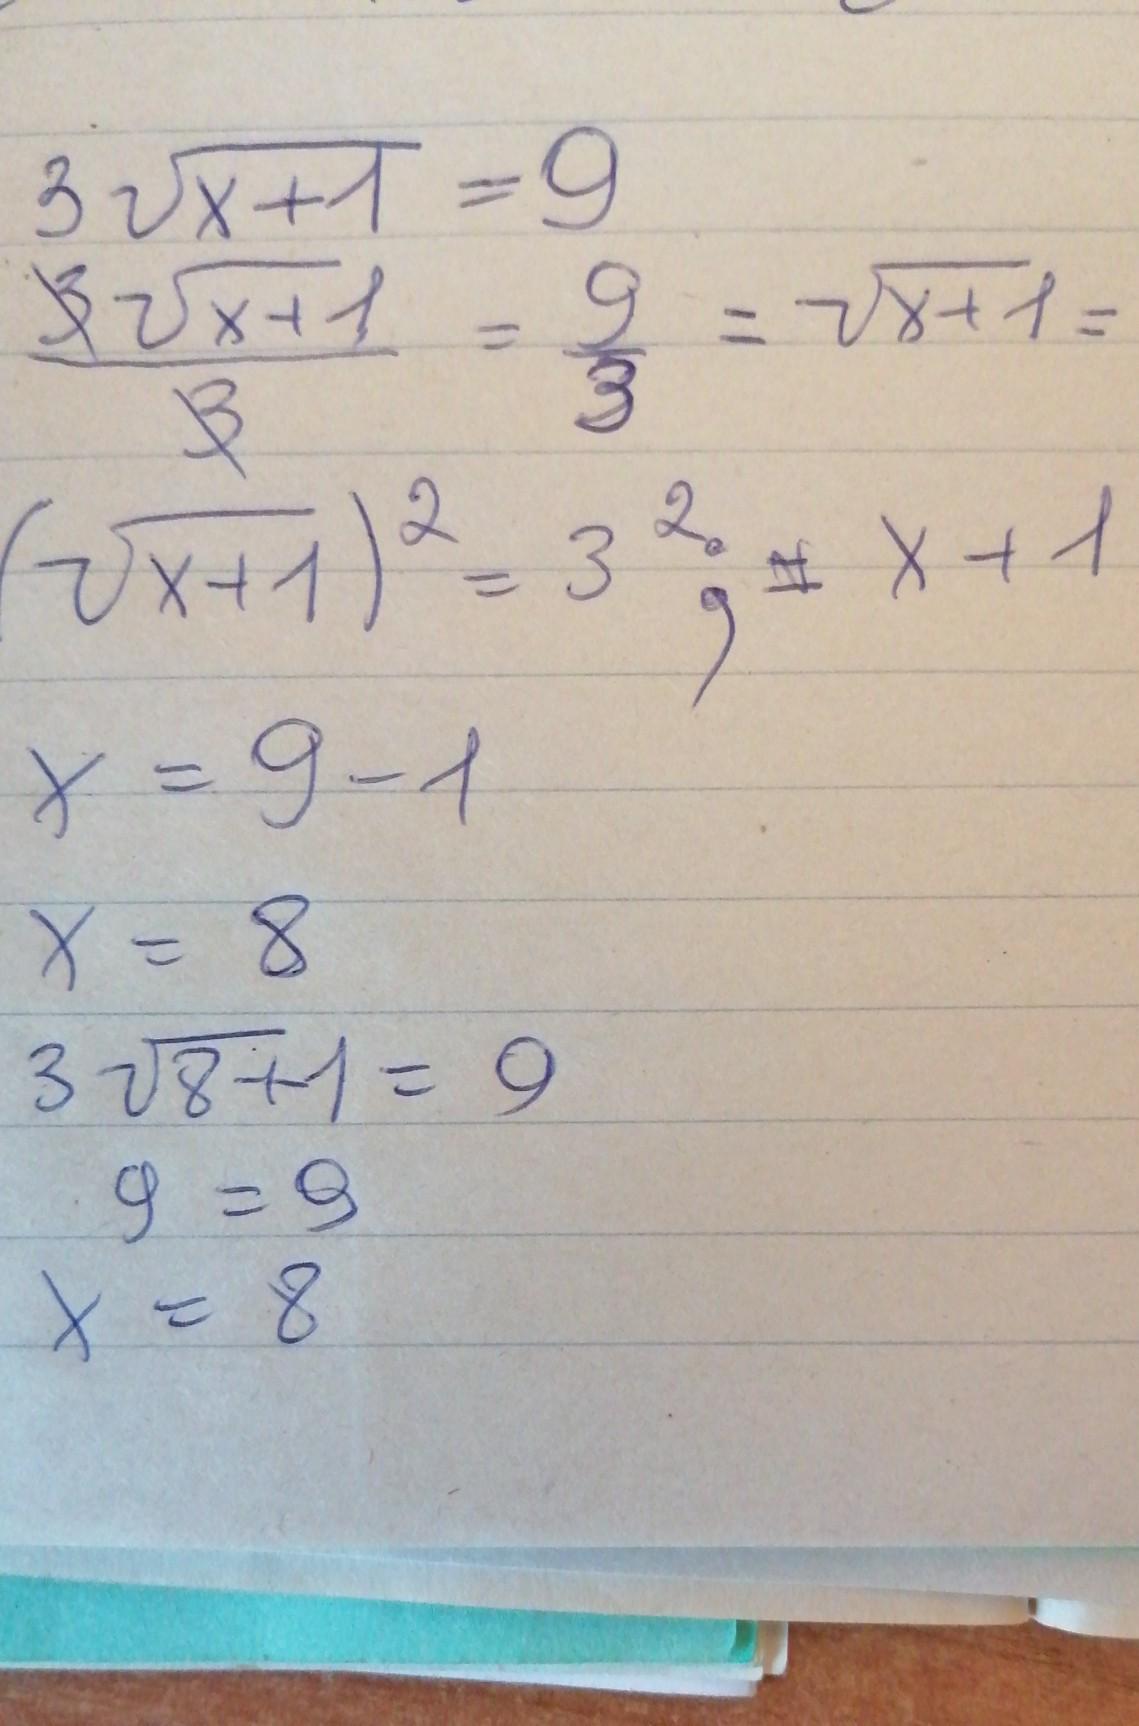 3√x+1 = 9
3√x+1 / 3 = 9/3 = √x+1 =
(√x+1)² = 3²; = x+1
x = 9-1
x = 8
3√8+1 = 9
9 = 9
x = 8